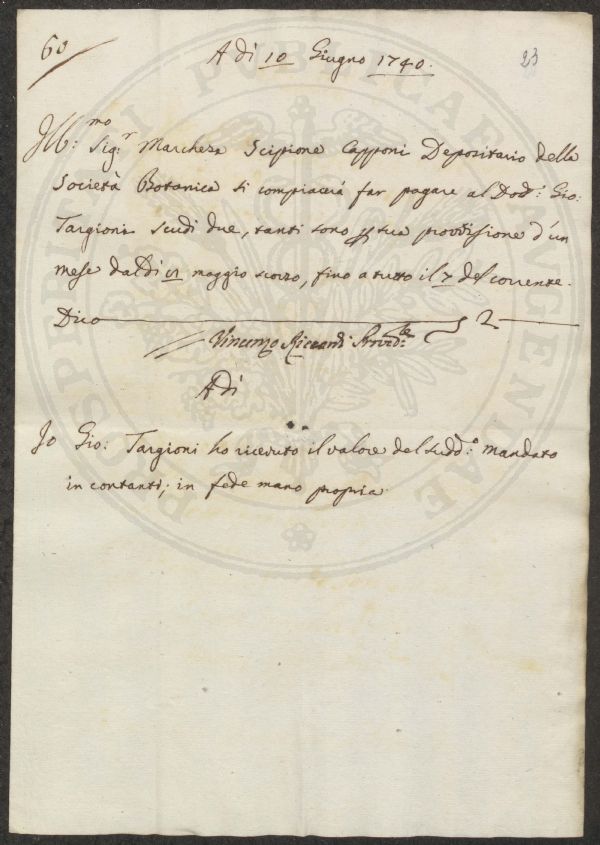 60
A dì 10 Giugno 1740.
23
Ill:mo Sig:r Marchese Scipione Capponi Depositario della
Società Botanica si compiacerà far pagare al Dod:e Gio:
Targioni scudi due, tanti sono p sua provvisione d'un
mese dal dì maggio scorso, fino a tutto il 7 del corrente.
Dico 2
Vincenzo Riccardi Proved:re
Adì
Io Gio: Targioni ho ricevuto il valore del sudd:o mandato
in contanti; in fede mano propria
PROSPERITATI PUBLICAE AUGENDAE